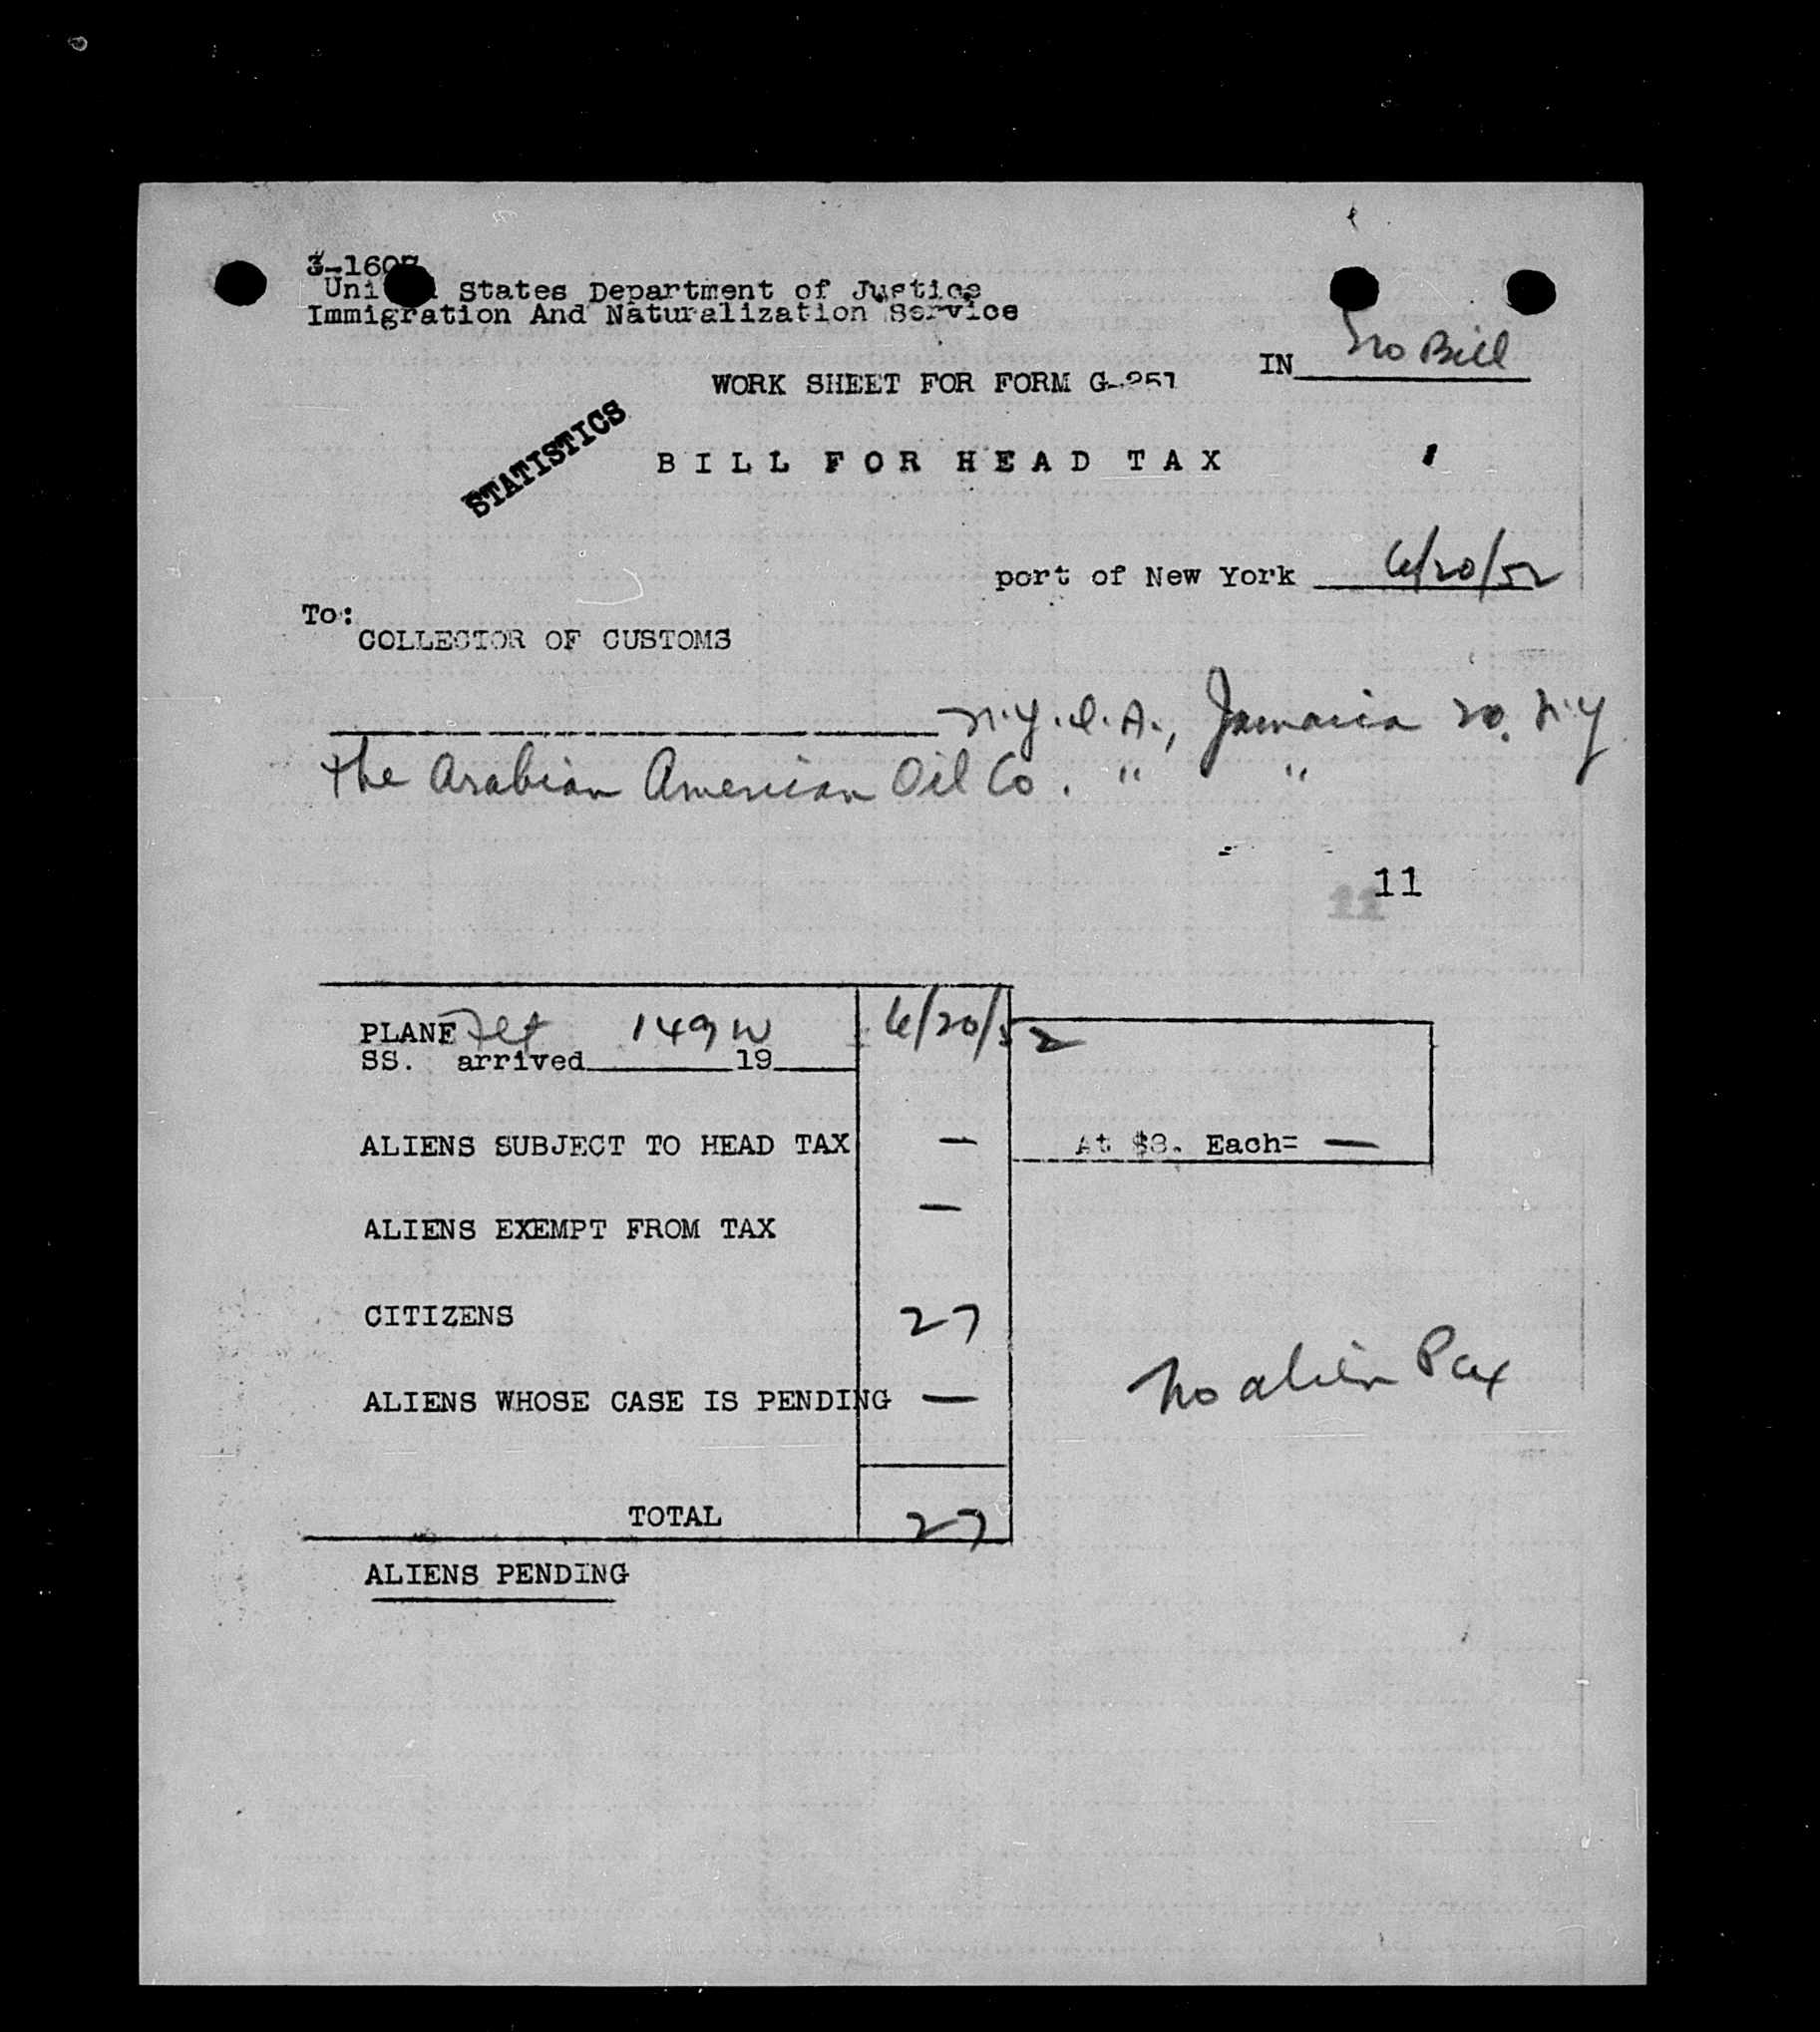 3-1607
Uni States Department of Justice
Immigration And Naturalization Service
IN No Bill
WORK SHEET FOR FORM G-251
STATISTICS
BILL FOR HEAD TAX
port of New York 6/20/52
To:
COLLECTOR OF CUSTOMS
N.Y.I.A., Jamaica 20, N.Y
The Arabian American Oil Co. " "
11
PLANE Flt 149 W 6/20/52
SS. arrived 19
ALIENS SUBJECT TO HEAD TAX — At $8. Each= —
ALIENS EXEMPT FROM TAX —
CITIZENS 27
No alien Pax
ALIENS WHOSE CASE IS PENDING —
TOTAL 27
ALIENS PENDING